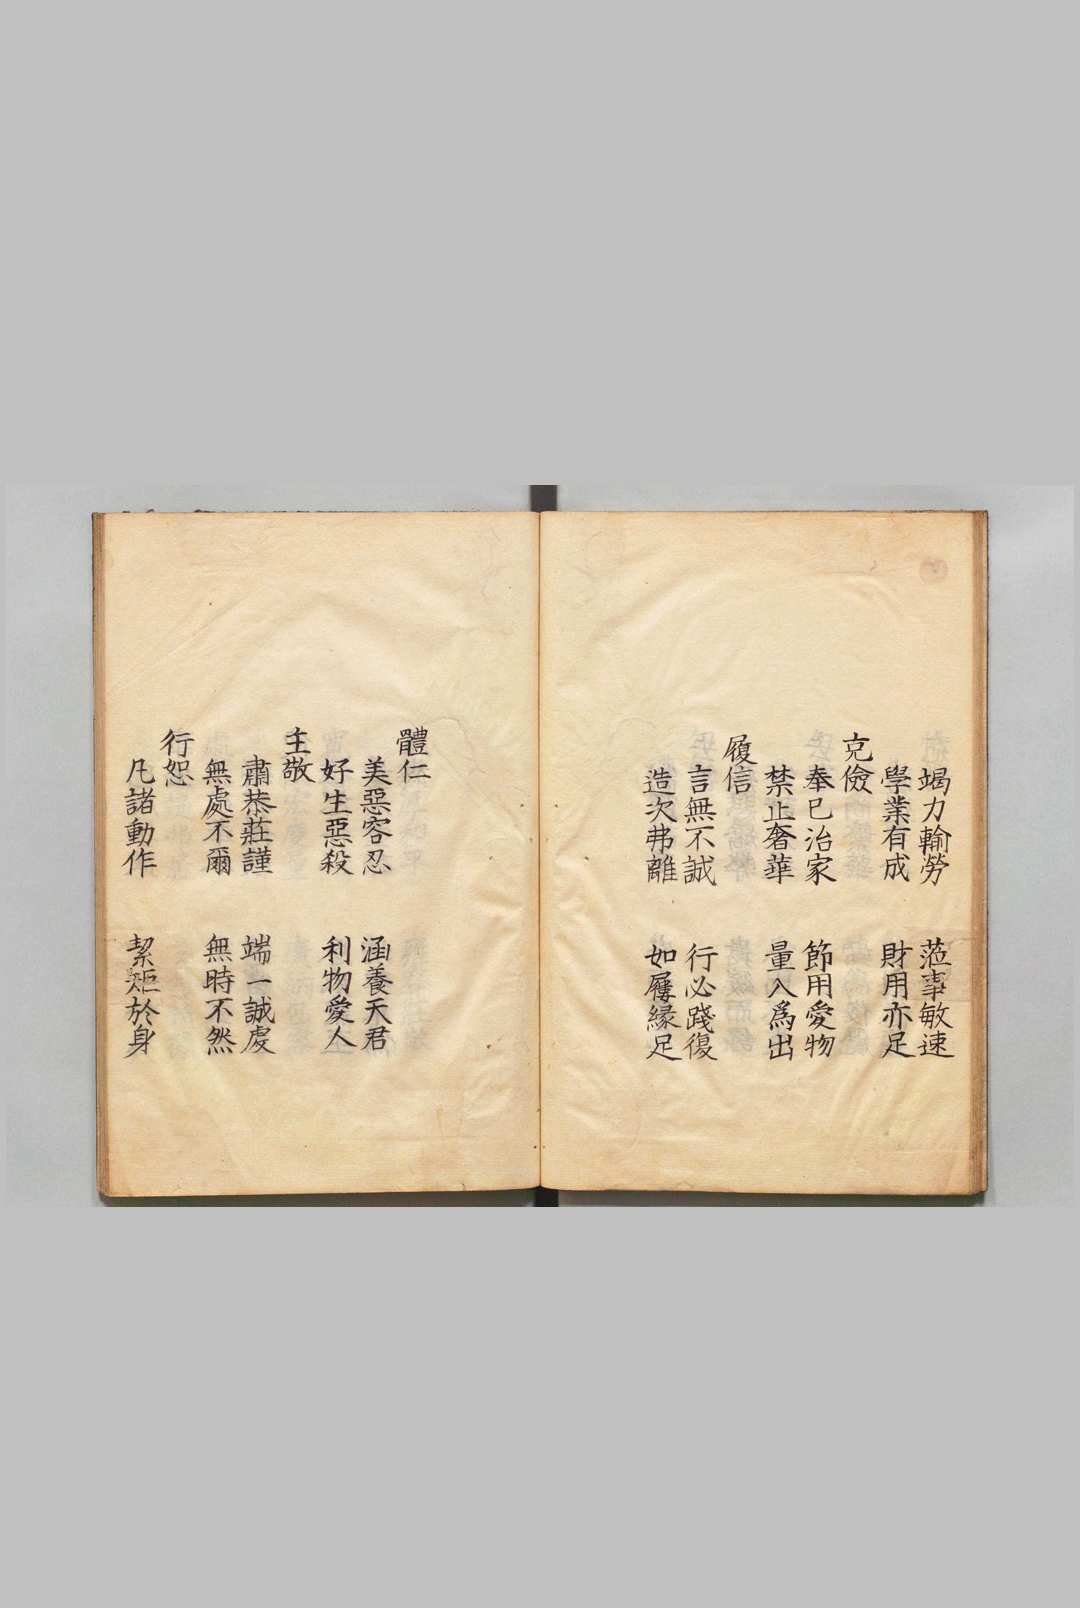 竭力輸勞 莅事敏速
學業有成 財用亦足
克儉
奉已治家 節用愛物
禁止奢華 量入爲出
履信
言無不誠 行必踐復
造次弗離 如屨緣足
體仁
美惡容忍 涵養天君
好生惡殺 利物愛人
主敬
肅恭莊謹 端一誠虔
無處不爾 無時不然
行恕
凡諸動作 絜矩於身